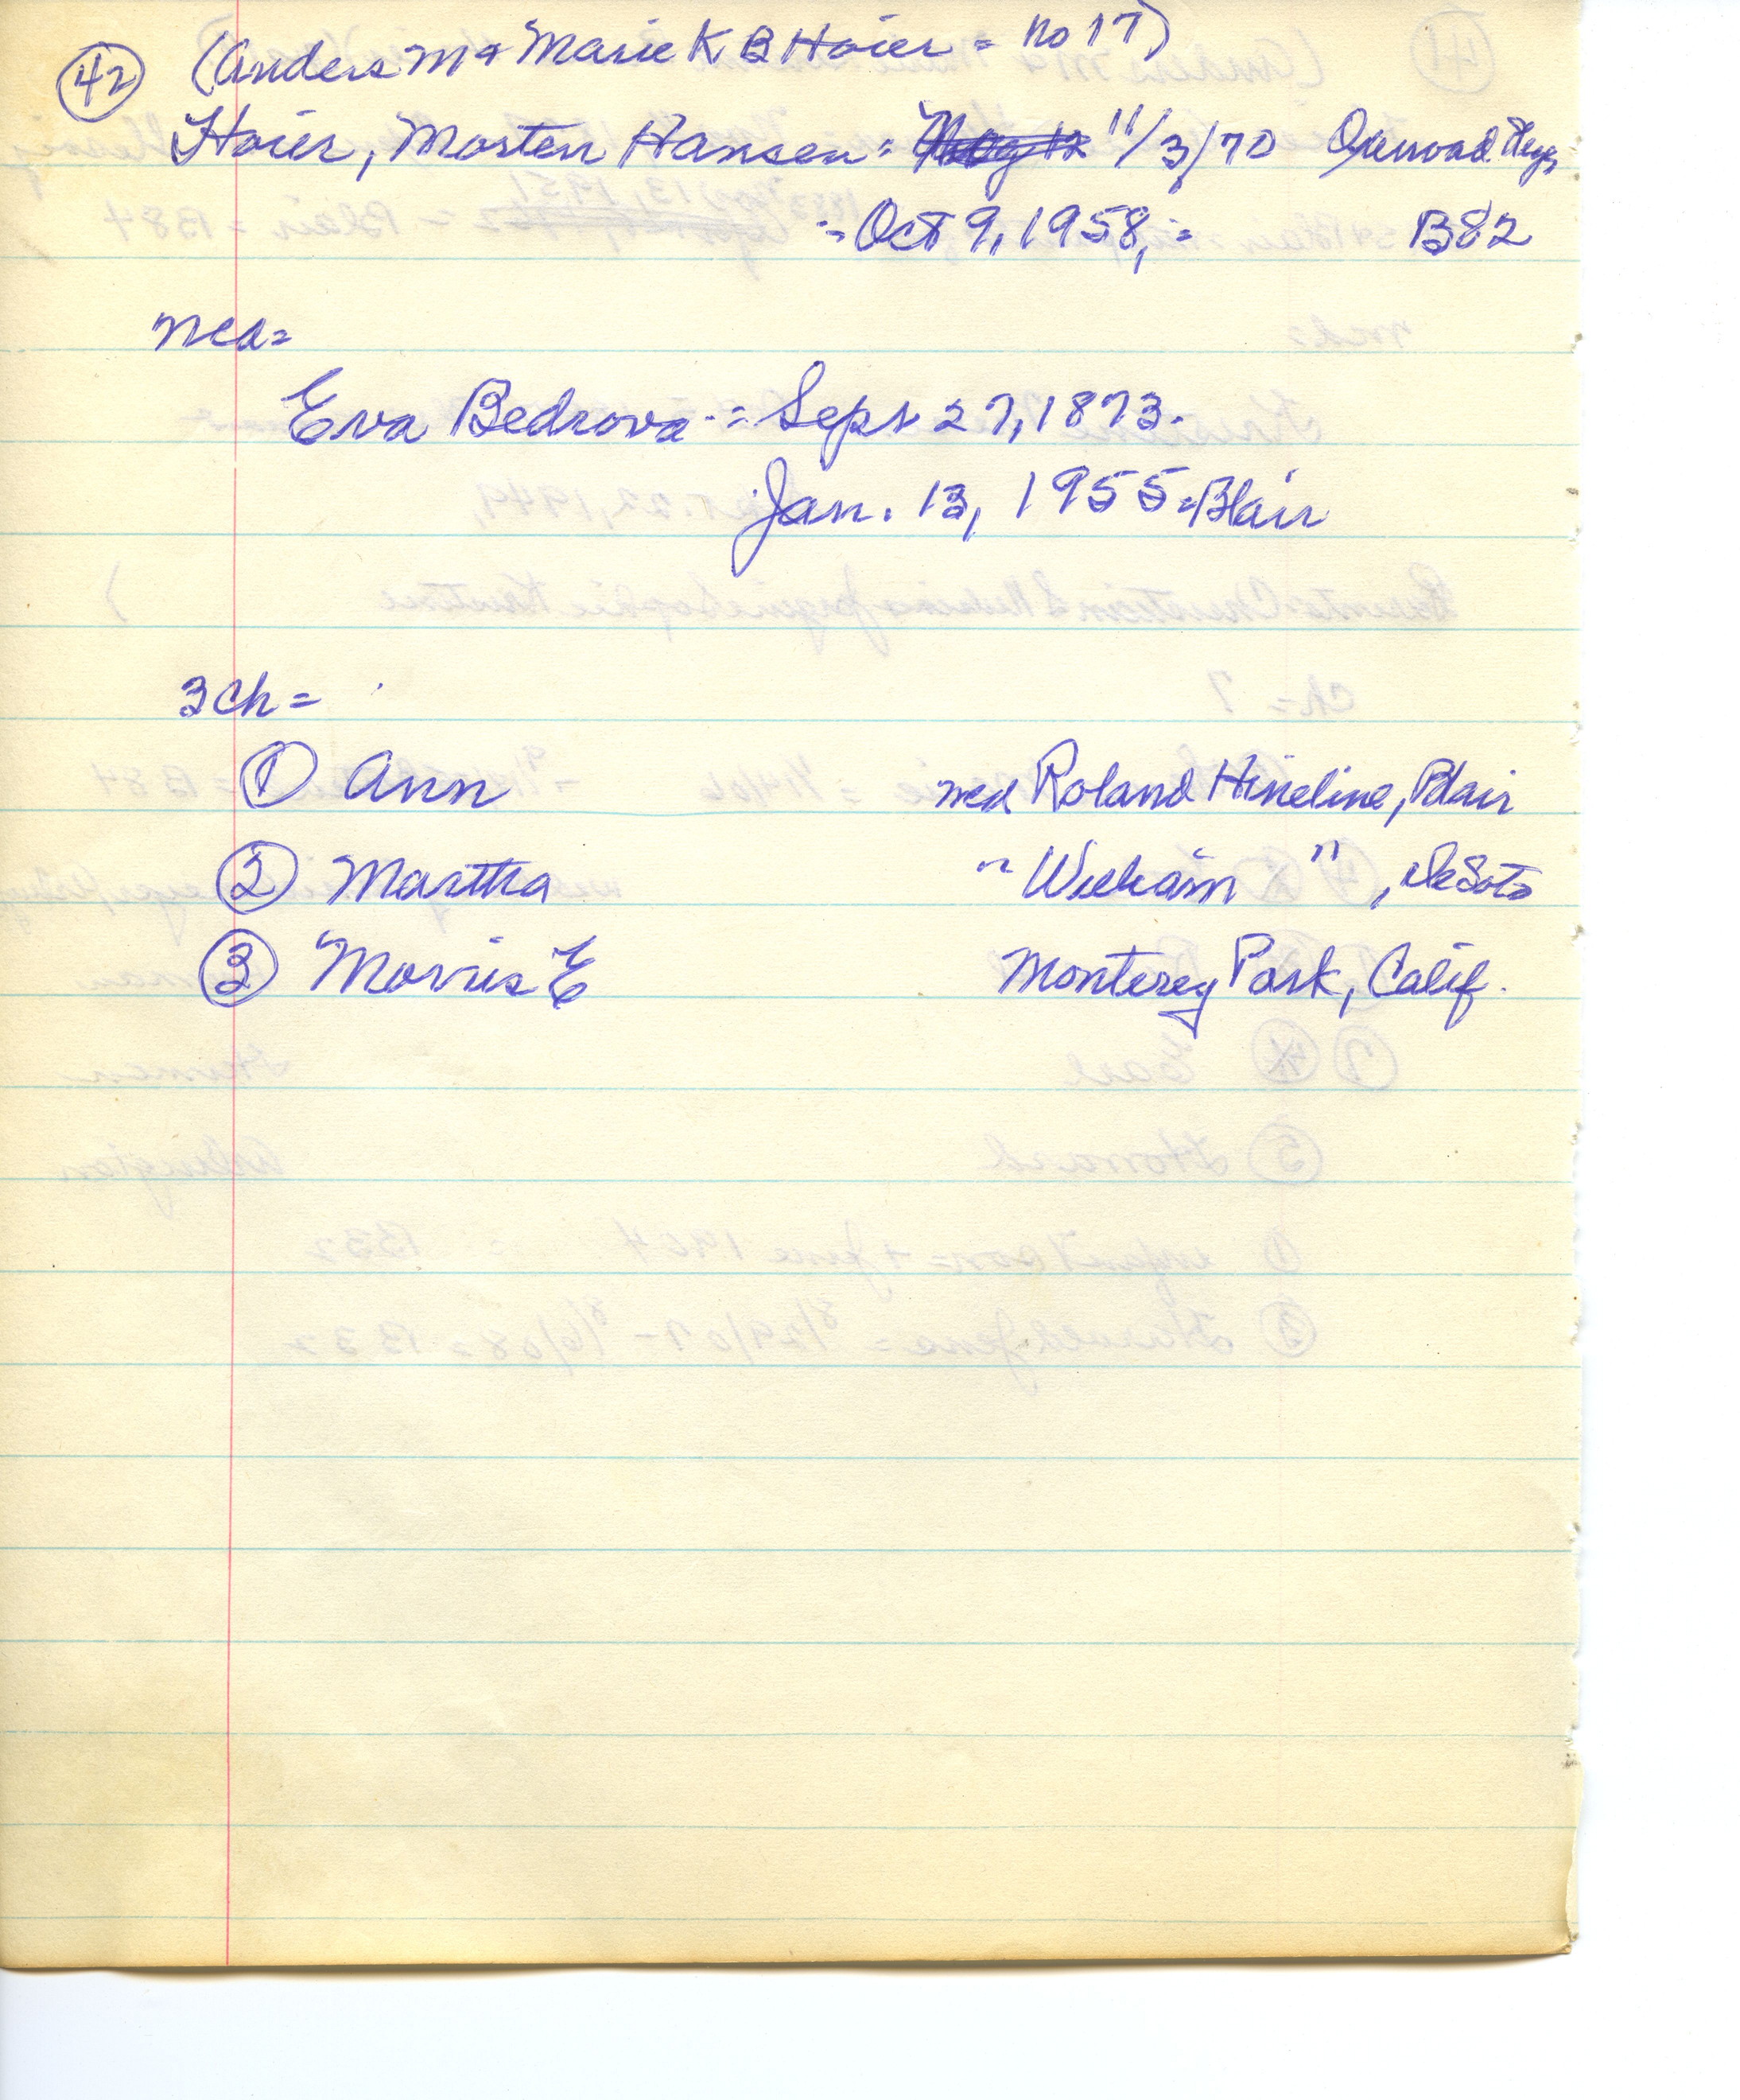 42 (Anders M & Marie K B Hoier = no 17)
Hoier, Morten Hansen = 11/3/70
= Oct 9, 1958, = B82
med=
Eva Bedrova = Sept 27, 1873.
Jan. 13, 1955 = Blair
3 ch =
1 Ann med Roland Hineline, Blair
2 Martha " William ", DeSoto
3 Morris E Monterey Park, Calif.